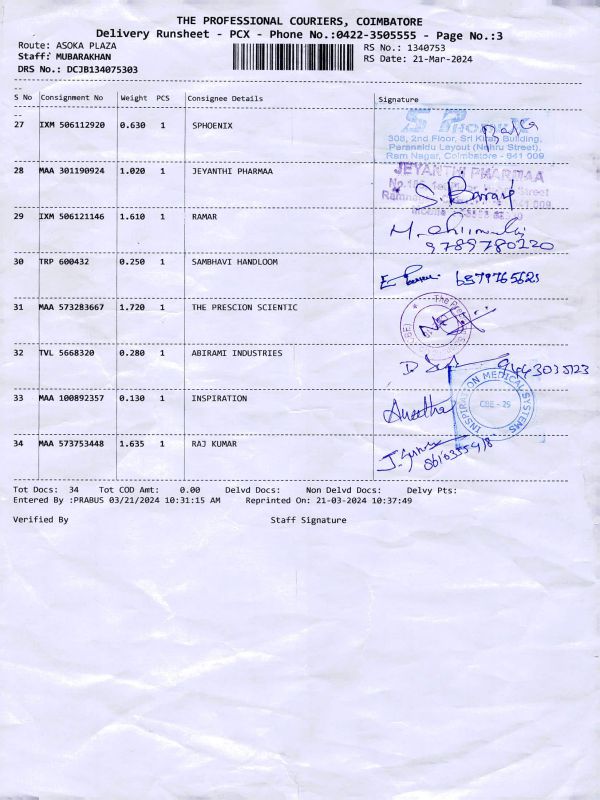 THE PROFESSIONAL COURIERS, COIMBATORE
Delivery Runsheet - PCX - Phone No.:0422-3505555 - Page No.:3
Route: ASOKA PLAZA RS No.: 1340753
Staff: MUBARAKHAN RS Date: 21-Mar-2024
DRS No.: DCJB134075303
S No Consignment No Weight PCS Consignee Details Signature
27 IXM 506112920 0.630 1 SPHOENIX
308, 2nd Floor, Sri Kiran Building,
Paranaidu Layout (Nehru Street),
Ram Nagar, Coimbatore - 641 009
28 MAA 301190924 1.020 1 JEYANTHI PHARMAA
JEYANTHI PHARMAA
29 IXM 506121146 1.610 1 RAMAR
9789780220
30 TRP 600432 0.250 1 SAMBHAVI HANDLOOM
31 MAA 573283667 1.720 1 THE PRESCION SCIENTIC
32 TVL 5668320 0.280 1 ABIRAMI INDUSTRIES
33 MAA 100892357 0.130 1 INSPIRATION
INSPIRATION MEDICAL SYSTEMS
CBE - 29
34 MAA 573753448 1.635 1 RAJ KUMAR
Tot Docs: 34 Tot COD Amt: 0.00 Delvd Docs: Non Delvd Docs: Delvy Pts:
Entered By :PRABUS 03/21/2024 10:31:15 AM Reprinted On: 21-03-2024 10:37:49
Verified By Staff Signature